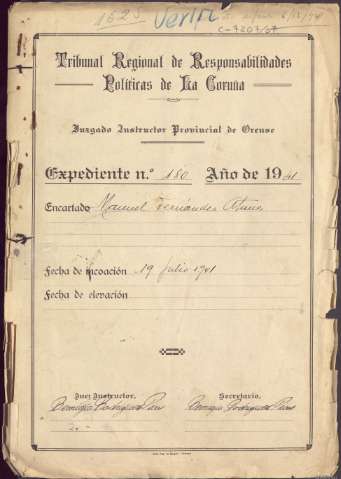 1625 Verin
C-7203/67
Tribunal Regional de Responsabilidades
Políticas de La Coruña
Juzgado Instructor Provincial de Orense
Expediente n.º 180 Año de 1941
Encartado Manuel Fernández
Fecha de incoación 19 julio 1941
Fecha de elevación
Juez Instructor, Secretario,